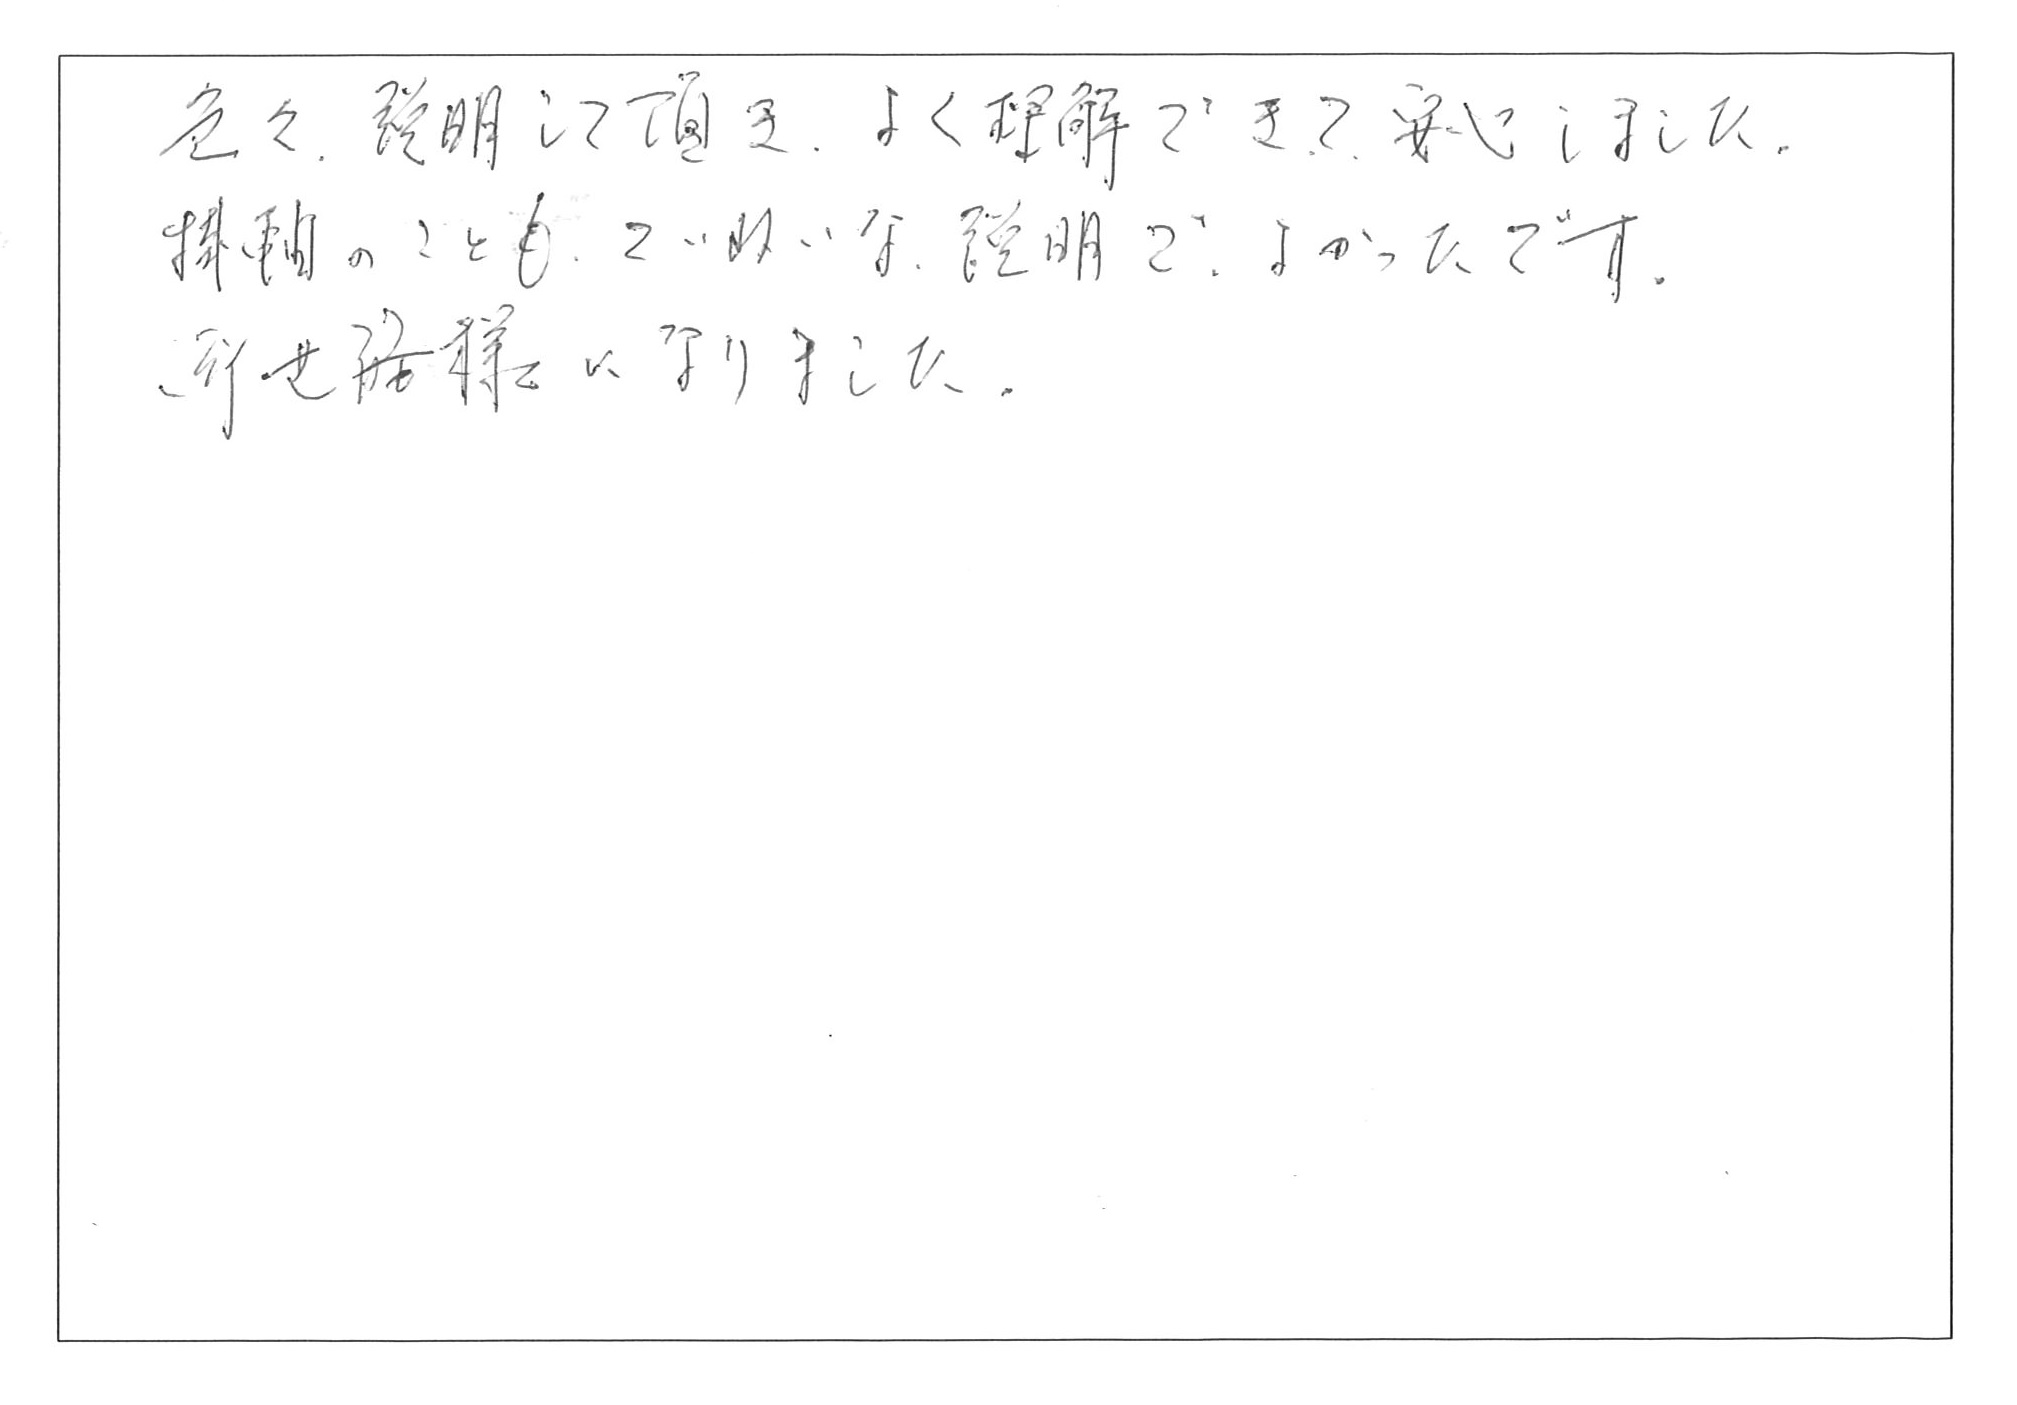 色々、説明して頂き、よく理解できて、安心しました。
掛軸のことも、ていねいな、説明で、よかったです。
御世話様になりました。